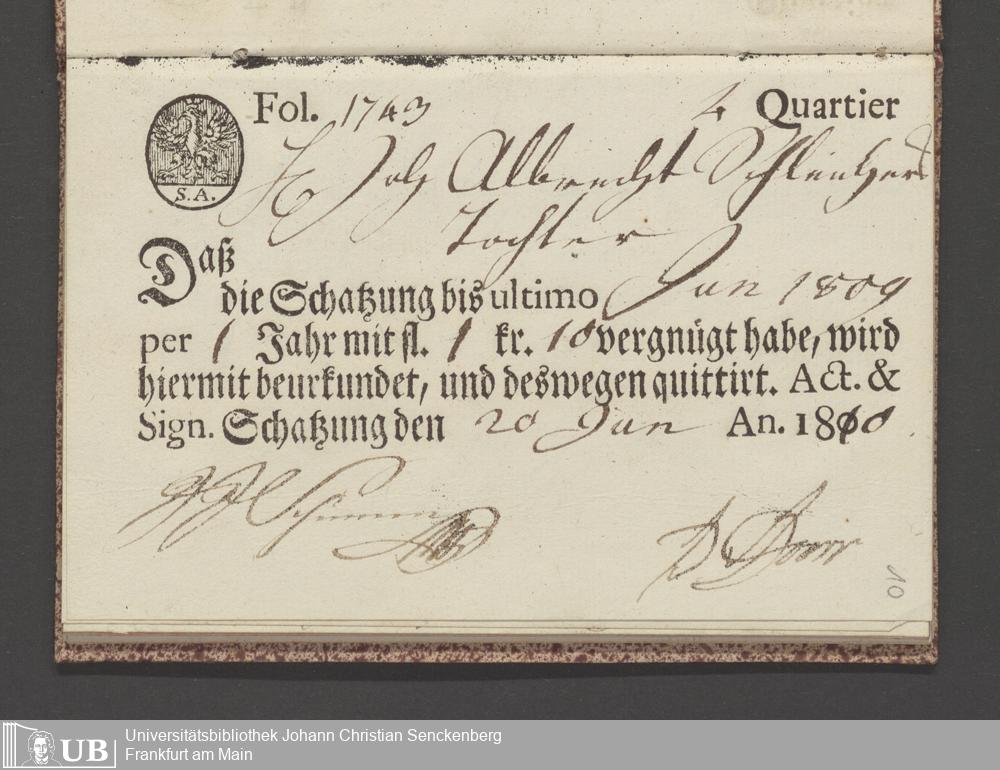 Fol. 1743 4 Quartier
S.A.
Joh Albrecht Schlentzers
Tochter
Daß
die Schatzung bis ultimo Jun 1809
per 1 Jahr mit fl. 1 kr. 10 vergnügt habe, wird
hiermit beurkundet, und deswegen quittirt. Act. &
Sign. Schatzung den 20 Jun An. 1810
10
UB
Universitätsbibliothek Johann Christian Senckenberg
Frankfurt am Main